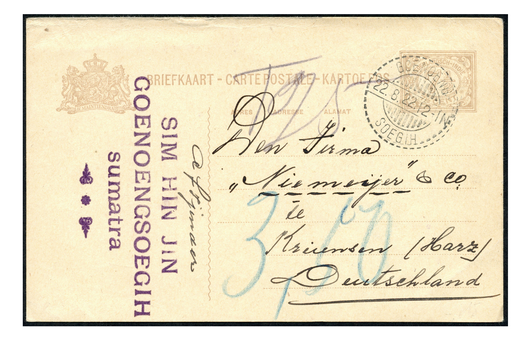 BRIEFKAART - CARTE POSTALE - KARTOE POS
ADRESSE ALAMAT
GOENOENG
22.8.22.12-1N
SOEGIH
Den Firma
„Niemeijer" & Co.
te
Kreiensen (Harz)
Deutschland
3,60
Afzender
SIM HIN JIN
GOENOENGSOEGIH
sumatra